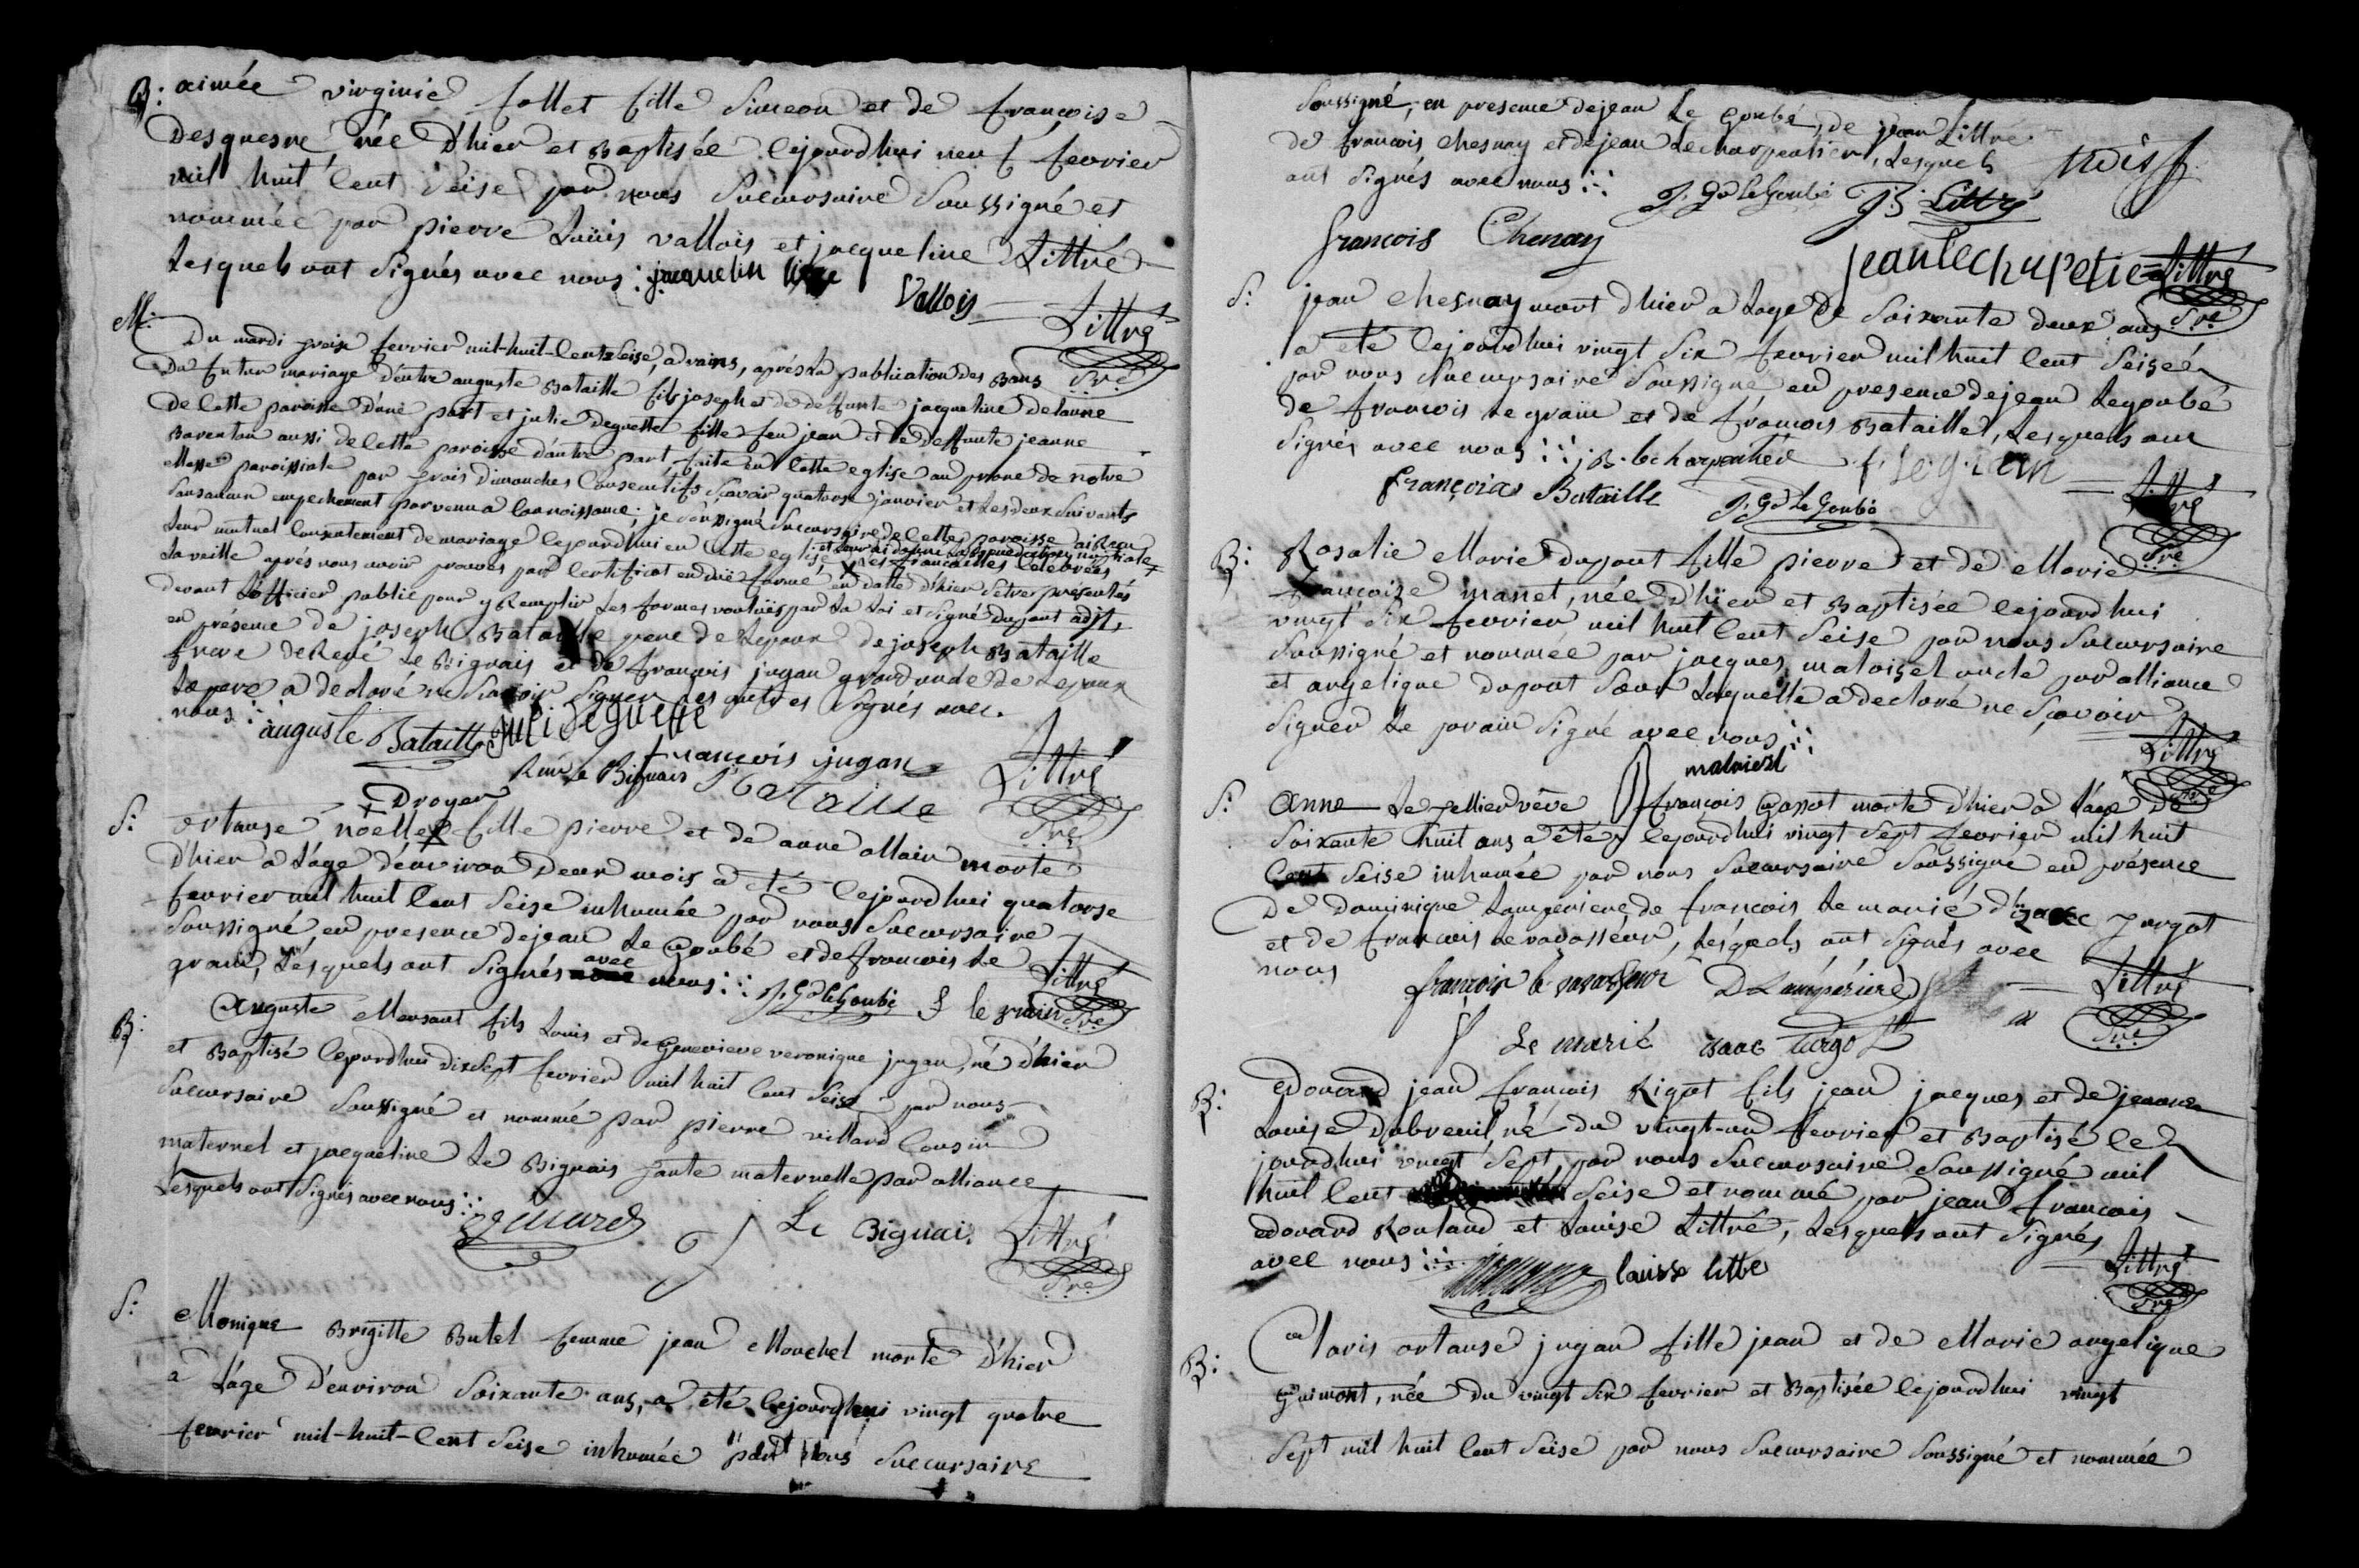 B: aimée virginie follet fille Simeon et de françoise
Desquesne née D'hier et Baptisée cejourd'hui neuf fevrier
mil huit Cent Seise par nous Succursaire Soussigné et
nommée par pierre Loüis vallois et jacqueline Littré
Lesquels ont Signés avec nous :. jacquelin
Vallois Littré
Sre
M: Du mardi treise fevrier mil-huit-Cent-Seise, a vains, après la publication des Bans
Du futur mariage d'entre auguste Bataille fils joseph et de deffunte jacqueline Delaune
de Cette paroisse d'une part et julie deguette fille feu jean et de deffunte jeanne
Baventon aussi de Cette paroisse d'autre part faite en Cette eglise au prone de notre
Messe paroissiale par trois Dimanches Consecutifs Sçavoir quatorse janvier et Les deux Suivants
Sans aucun empechement parvenu a Connoissance; je Soussigné Succursaire de Cette paroisse ai Recu
Leur mutuel Consentement de mariage Cejourd'hui en Cette eglise et Leur ai donné La Benediction nuptiale
X Les fiancailles Celebrées
La veille après nous avoir prouvés par Certificat en düe forme en datte d'hier S'etre présentés
devant L'officier public pour y Remplir Les formes voulües par La Loi et Signé Dupont adjt,
en présence de joseph Bataille pere de Lepoux de joseph Bataille
frere de René Le Bignais et de françois jugan grand oncle de Lepoux
Le pere a declaré ne Scavoir Signer Les autres Signés avec
nous :. auguste Bataille juli deguette
françois jugan
René le Bignais Bataille Littré
Sre
S: Droyer
ortanse noelle X fille pierre et de anne allain morte
D'hier a L'age d'environ Deux mois a été Cejourd'hui quatorse
fevrier mil huit Cent Seise inhumée par nous Succursaire
Soussigné en presence de jean Le Goubé et de françois Le
grain, Lesquels ont Signés avec nous :. J. Gd LeGoubé F le grain Littré
Sre
B: Auguste Mensant fils Louis et de Genevieve veronique jugan, né d'hier
et Baptisé Cejourd'hui dixsept fevrier mil huit Cent Seise par nous
Succursaire Soussigné et nommé par pierre villard Cousin
maternel et jacqueline Le Bignais tante maternelle par alliance
Lesquels ont Signés avec nous :.
Le Bignai. Littré
Sre
S: Monique Brigitte Butel femme jean Mouchel morte D'hier
a L'age D'environ Soixante ans, a été Cejourd'hui vingt quatre
fevrier mil-huit-Cent Seise inhumée par Nous Succursaire
Soussigné, en presence de jean Le Goubé, de jean Littré
de francois Chesnay et de jean Lecharpentier, Lesquels
ont Signés avec nous :. J. Gd LeGoubé J B Littré
françois Chenay
jean lechapetie Littré
Sre
S: jean Chesnay mort d'hier a L'age de Soixante deux ans
a eté Cejourd'hui vingt Six fevrier mil huit Cent Seise
par nous Succursaire Soussigné en presence de jean Legoubé
de francois Le grain et de francois Bataille, Lesquels ont
Signés avec nous :. j. B. le charpentier f. legrain
françois Bataille J. Gd Le Goubé Littré
Sre
B: Rosalie Marie dupont fille pierre et de Marie
françoise manet, née D'hier et Baptisée Cejourd'hui
vingt Six fevrier mil huit Cent Seise par nous Succursaire
Soussigné et nommée par jacques maloisel oncle par alliance
et angelique dupont Sœur Laquelle a declaré ne Sçavoir
Signer Le parain Signé avec nous :.
maloisel Littré
Sre
S: Anne Le tellier veve françois Gossot morte d'hier a L'age De
Soixante huit ans a été Cejourd'hui vingt Sept fevrier mil huit
Cent Seise inhumée par nous Succursaire Soussigné en présence
De Dominique Lamperiere, de francois Le marié d'izaac Turgot
et de francois Levavasseur, Lesquels ont Signés avec
nous françois le vavasseur D Lamperiere Littré
Sre
Le marié isaac turgot
B: edouard jean françois Rigot fils jean jacques et de jeanne
Louise Dubreuil né du vingt-un fevrier et Baptisé Ce
jourd'hui vingt Sept, par nous Succursaire Soussigné mil
huit Cent Seise et nommé par jean francois
edouard Rouland et Louise Littré, Lesquels ont Signés
avec nous :. louise litte Littré
Sre
B: Claris ortanse jugan fille jean et de Marie angelique
Guimont, née du vingt Six fevrier et Baptisée Cejourd'hui vingt
Sept mil huit Cent Seise par nous Succursaire Soussigné et nommée